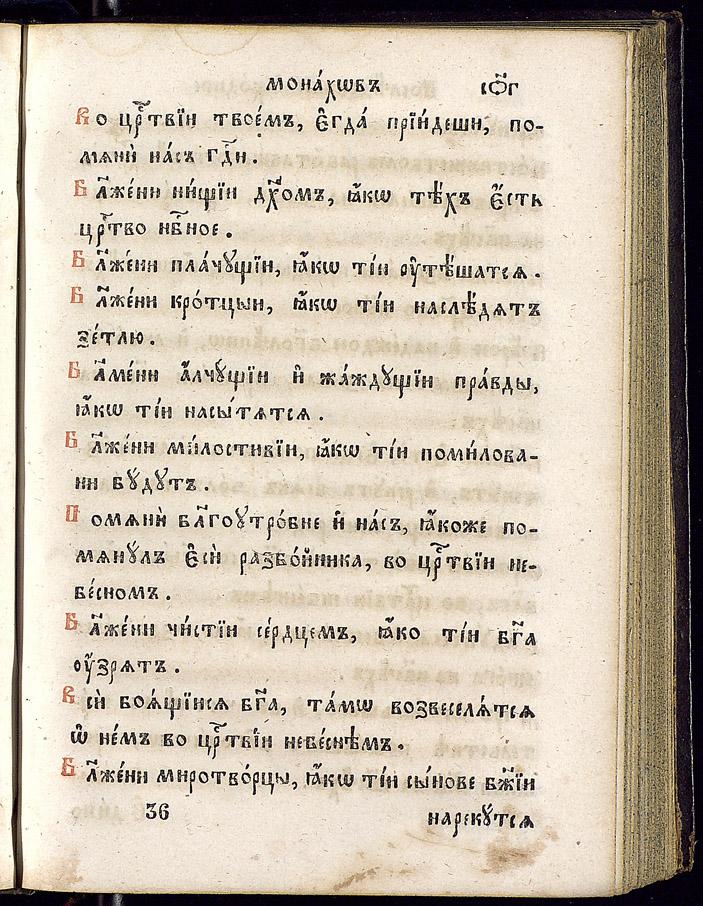 мона́хѡвъ сѻ҃г
Во црⷭ҇твїи твое́мъ, є҆гда̀ прїи́деши, по-
мѧнѝ на́съ гдⷭ҇и.
Бл҃же́ни ни́щїи дх҃омъ, ꙗ҆́кѡ тѣ́хъ є҆́сть
црⷭ҇тво нбⷭ҇ное.
Бл҃же́ни пла́чꙋщїи, ꙗ҆́кѡ ті́и ᲂу҆тѣ́шатсѧ.
Бл҃же́ни кро́тцыи, ꙗ҆́кѡ ті́и наслѣ́дѧтъ
зе́тлю.
Бл҃аме́ни а҆́лчꙋщїи и҆ жа́ждꙋщїи пра́вды,
ꙗ҆́кѡ ті́и насы́тѧтсѧ.
Бл҃же́ни ми́лостивїи, ꙗ҆́кѡ ті́и поми́лова-
ни бꙋ́дꙋтъ.
Помѧнѝ бл҃гоутро́бне и҆ на́съ, ꙗ҆́коже по-
мѧнꙋ́лъ є҆сѝ разбо́йника, во црⷭ҇твїи не-
бе́сномъ.
Бл҃же́ни чи́стїи се́рдцемъ, ꙗ҆́ко ті́и бг҃а
ᲂу҆́зрѧтъ.
Всѝ боѧ́щїисѧ бг҃а, та́мѡ возвеселѧ́тсѧ
ѡ҆ не́мъ во црⷭ҇твїи небе́снѣмъ.
Бл҃же́ни миротво́рцы, ꙗ҆́кѡ ті́и сы́нове бж҃їи
36 нарекꙋ́тсѧ